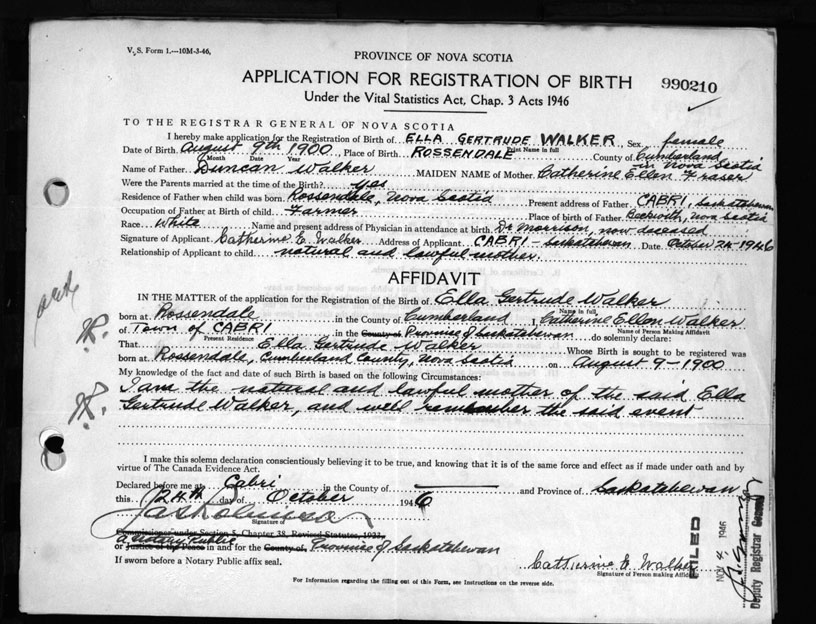 V. S. Form 1.—10M-3-46.
PROVINCE OF NOVA SCOTIA
APPLICATION FOR REGISTRATION OF BIRTH
990210
Under the Vital Statistics Act, Chap. 3 Acts 1946
TO THE REGISTRAR GENERAL OF NOVA SCOTIA
I hereby make application for the Registration of Birth of ELLA GERTRUDE WALKER, Sex female
Print Name in full
Date of Birth August 9th 1900, Place of Birth ROSSENDALE County of Cumberland in Nova Scotia
Month Date Year
Name of Father Duncan Walker MAIDEN NAME of Mother Catherine Ellen Fraser
Were the Parents married at the time of the Birth? yes
Residence of Father when child was born Rossendale, Nova Scotia Present address of Father CABRI, Saskatchewan
Occupation of Father at Birth of child Farmer Place of birth of Father Beckwith, Nova Scotia
Race White Name and present address of Physician in attendance at birth Dr Morrison, now deceased
Signature of Applicant Catherine E. Walker Address of Applicant CABRI - Saskatchewan Date October 24-1946
Relationship of Applicant to child natural and lawful mother.
AFFIDAVIT
IN THE MATTER of the application for the Registration of the Birth of Ella Gertrude Walker
Name in full
born at Rossendale in the County of Cumberland I Catherine Ellen Walker
Name of Person Making Affidavit
of Town of CABRI in the County of Province of Saskatchewan do solemnly declare:
Present Residence
That Ella Gertrude Walker Whose Birth is sought to be registered was
born at Rossendale, Cumberland County, Nova Scotia on August 9-1900
My knowledge of the fact and date of such Birth is based on the following Circumstances:
I am the natural and lawful mother of the said Ella
Gertrude Walker, and well remember the said event
I make this solemn declaration conscientiously believing it to be true, and knowing that it is of the same force and effect as if made under oath and by
virtue of The Canada Evidence Act.
Declared before me at Cabri in the County of and Province of Saskatchewan
this 24th day of October 1946
Signature of
Commissioner under Section 5, Chapter 38, Revised Statutes, 1931,
a Notary Public
or Justice of the Peace in and for the County of, Province of Saskatchewan
If sworn before a Notary Public affix seal.
Catherine E. Walker
Signature of Person making Affidavit
For Information regarding the filling out of this Form, see Instructions on the reverse side.
FILED
NOV 4 1946
Deputy Registrar General